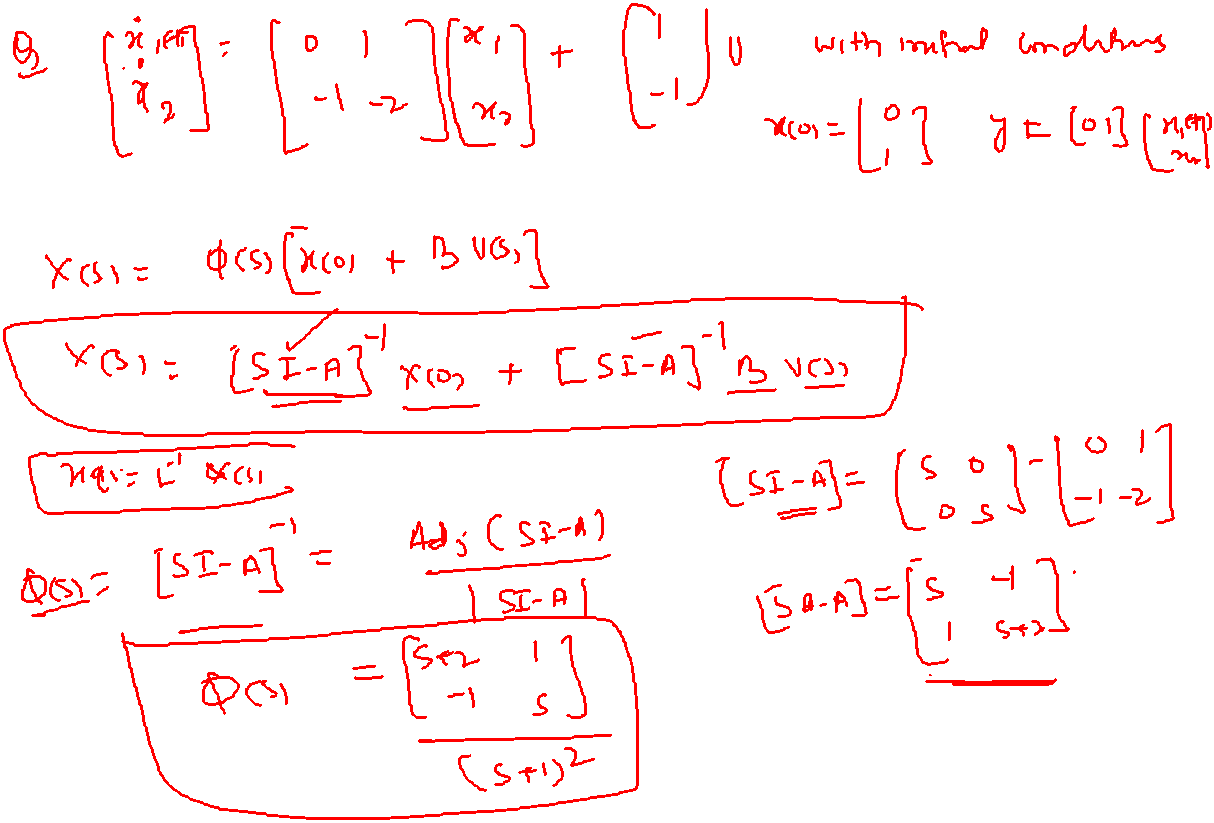 Q [ẋ1(t) ẋ2] = [0 1 -1 -2] [x1 x2] + [1 -1] U with initial conditions
x(0) = [0 1] y = [0 1] [x1(t) x2]
X(s) = φ(s) [x(0) + B U(s)]
X(s) = [SI-A]^-1 x(0) + [SI-A]^-1 B U(s)
x(t) = L^-1 X(s)
[SI-A] = [S 0 0 S] - [0 1 -1 -2]
φ(s) = [SI-A]^-1 = Adj (SI-A) / |SI-A|
[SA-A] = [S -1 1 S+2]
φ(s) = [S+2 1 -1 S] / (S+1)^2